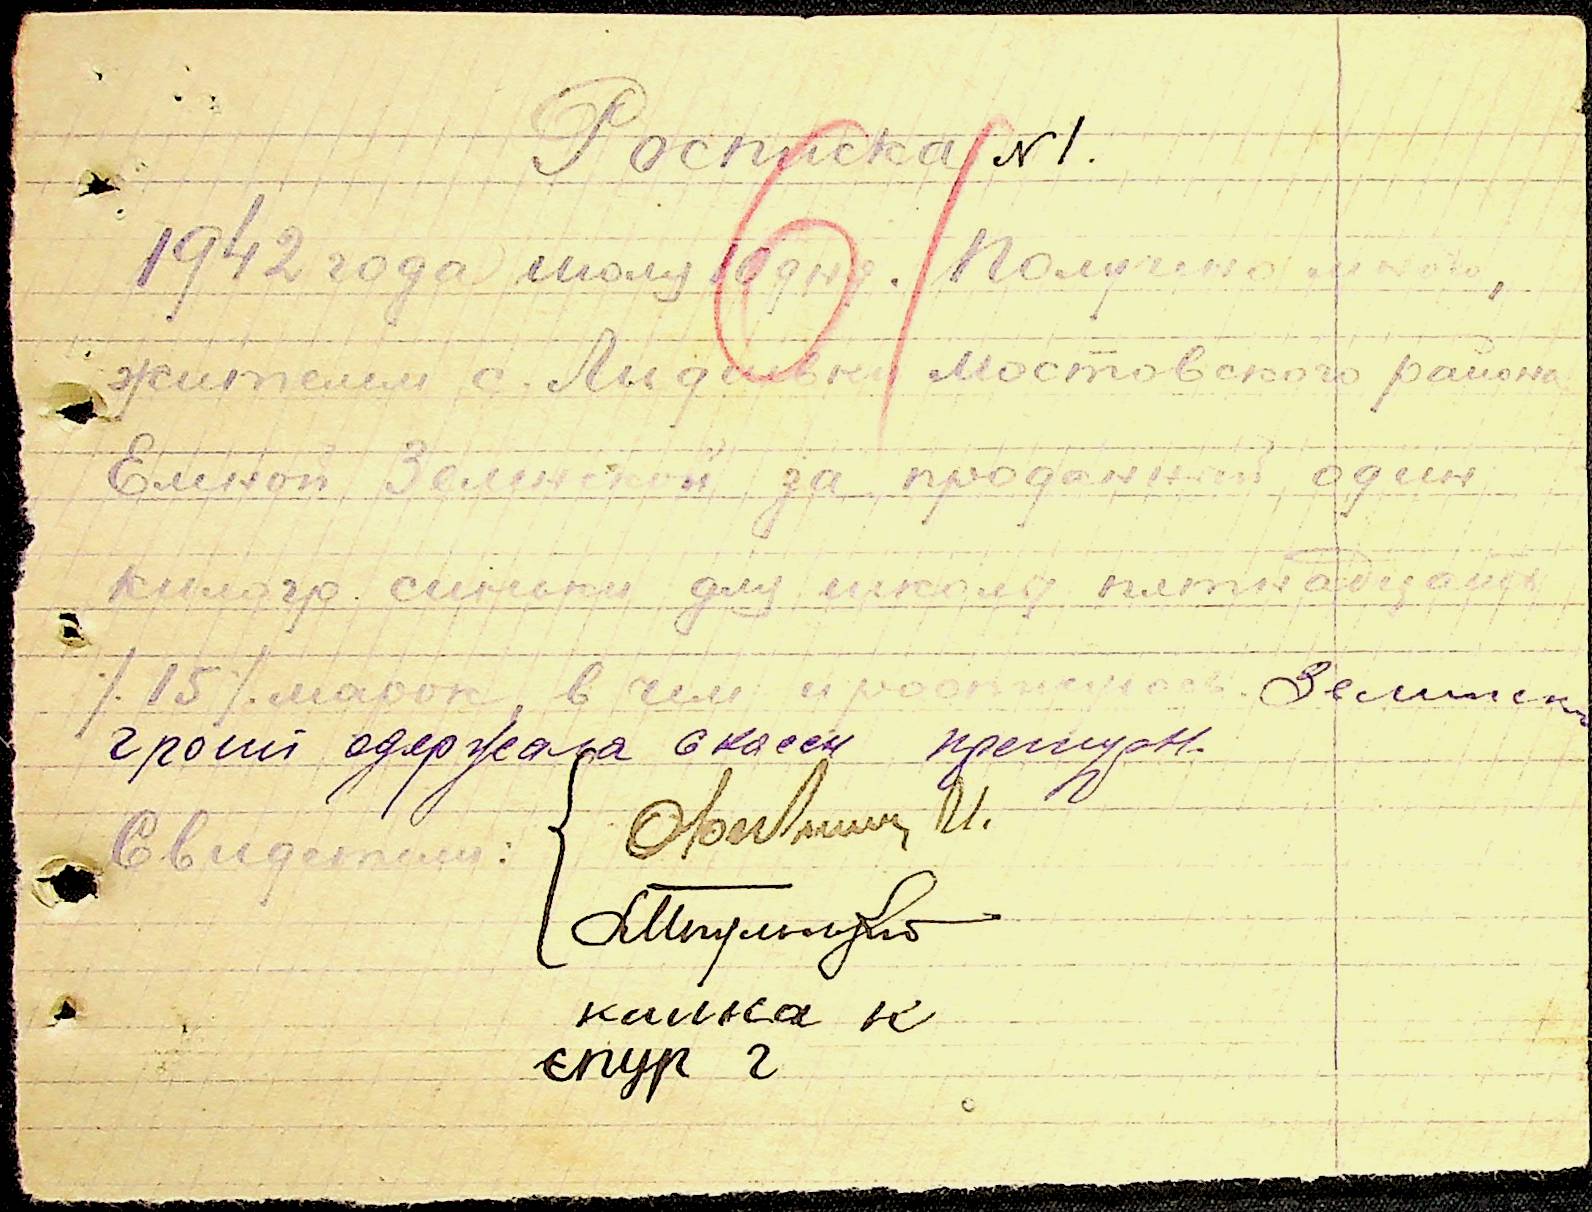 Росписка N 1.
61
1942 года июля 10 дня. Получено мною,
жителем с. Лидиевки Мостовского района
Еленой Зелинской за проданный один
килогр. синьки для школы пятнадцать
/.15/. марок, в чем и роспишуюсь. Зелинска
гроші одержала с касси
Свидетели: И.
калка к
єпур г